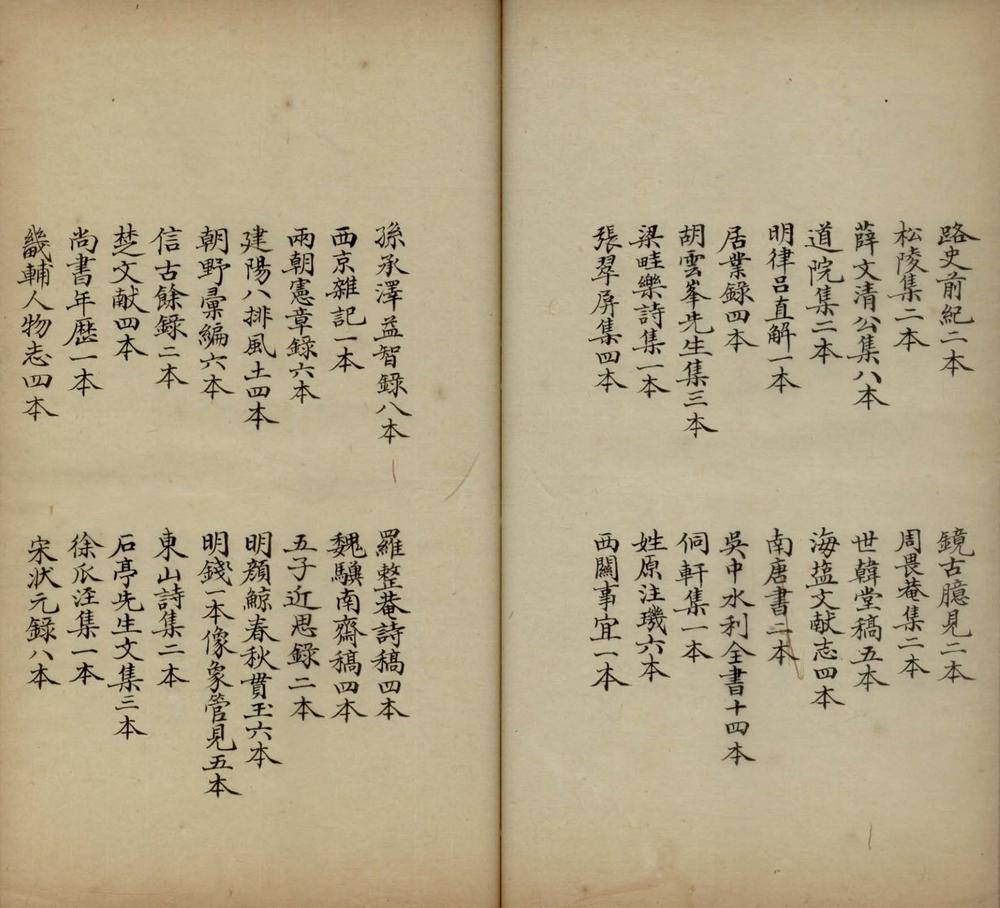 路史前紀二本
鏡古臆見二本
松陵集二本
周畏菴集二本
薛文清公集八本
世韓堂稿五本
道院集二本
海盐文献志四本
明律吕直解一本
南唐書二本
居業録四本
吳中水利全書十四本
胡雲峯先生集三本
侗軒集一本
梁畦樂詩集一本
姓原注璣六本
張翠屏集四本
西關事宜一本
孫承澤益智録八本
羅整菴詩稿四本
西京雜記一本
魏驥南齋稿四本
兩朝憲章録六本
五子近思錄二本
建陽八排風土四本
明顏鯨春秋貫玉六本
朝野彙編六本
明錢一本像象管見五本
信古餘錄二本
東山詩集二本
楚文献四本
石亭先生文集三本
尚書年歷一本
徐瓜涇集一本
畿輔人物志四本
宋狀元錄八本